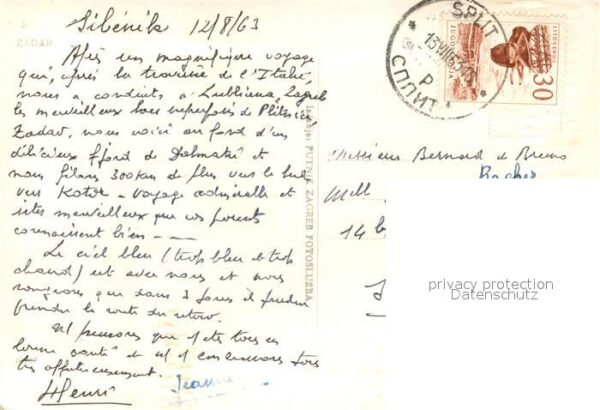 Sibénik 12/8/63
Après un magnifique voyage
qui, après la traversée de l'Italie,
nous a conduits à Lubliena, Zagreb
les merveilleux lacs superposés de Plitvice
Zadar, nous voici au fond d'un
délicieux fjord de Dalmatie et
nous filons 300km de plus vers le Sud
vers Kotor - voyage admirable et
sites merveilleux que vos parents
connaissent bien - - -
Le ciel bleu (trop bleu et trop
chaud) est avec nous et nous
songeons que dans 3 jours il faudra
prendre la route du retour.
et pensons que vs êtes tous en
bonne santé et vs embrassons tous
très affectueusement.
Henri Jeanne
ZADAR
Izdaje: PUTNIK ZAGREB FOTOSLUŽBA
SPLIT
13.VIII.63
P
СПЛИТ
JUGOSLAVIJA
30
Messieurs Bernard de Bruno
Roches
Mell
14 b
privacy protection
Datenschutz